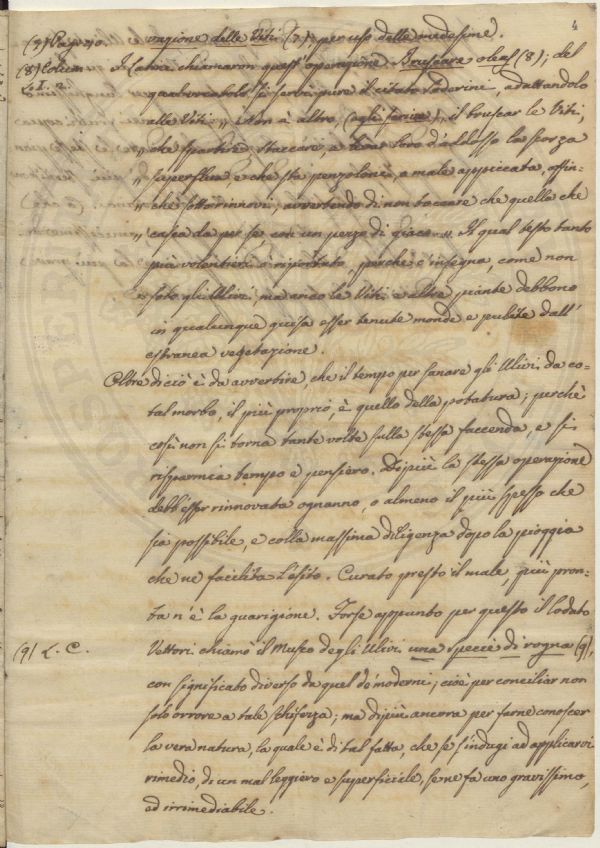 4
(7) Pag. 210. vagione delle Viti (7), per uso delle medesime.
(8) Colum. I Latini chiamaron quest'operazione Bruscare oleas (8); del
L. I. 2. qual vocabolo si servì pure il citato Soderini, adattandolo
alle Viti: „ Non è altro, (egli scrive), il bruscar le Viti,
„ che spartire, staccare, e levar loro d'addosso la scorza
„ superflua e che sta penzoloni, e male appiccata, affin-
„ chè sotto rinnovi, avvertendo di non toccare che quella che
„ casca da per se, con un pezzo di „ Il qual testo tanto
più volentieri ò riportato, perchè c'insegna, come non
solo gli Ulivi, ma anco le Viti e altre piante debbono
in qualunque guisa esser tenute monde e pulite dall'
estranea vegetazione.
Oltre di ciò è da avvertire, che il tempo per sanare gli Ulivi da co-
tal morbo, il più proprio, è quello della potatura; perchè
così non si torna tante volte sulla stessa faccenda, e si
risparmia tempo e pensiero. Dipiù la stessa operazione
debb'esser rinnovata ognanno, o almeno il più spesso che
sia possibile, e colla massima diligenza dopo la pioggia
che ne facilita l'esito. Curato presto il male, più pron-
ta n'è la guarigione. Forse appunto per questo il lodato
(9) L. C. Vettori chiamò il Musco degli Ulivi una specie di rogna (9),
con significato diverso da quel de' moderni; cioè per conciliar non
solo orrore a tale schifezza; ma dipiù ancora per farne conoscer
la vera natura, la quale è di tal fatta, che se s'indugi ad applicarvi
rimedio, di un mal leggiero e superficiale, se ne fa uno gravissimo,
ed irrimediabile.